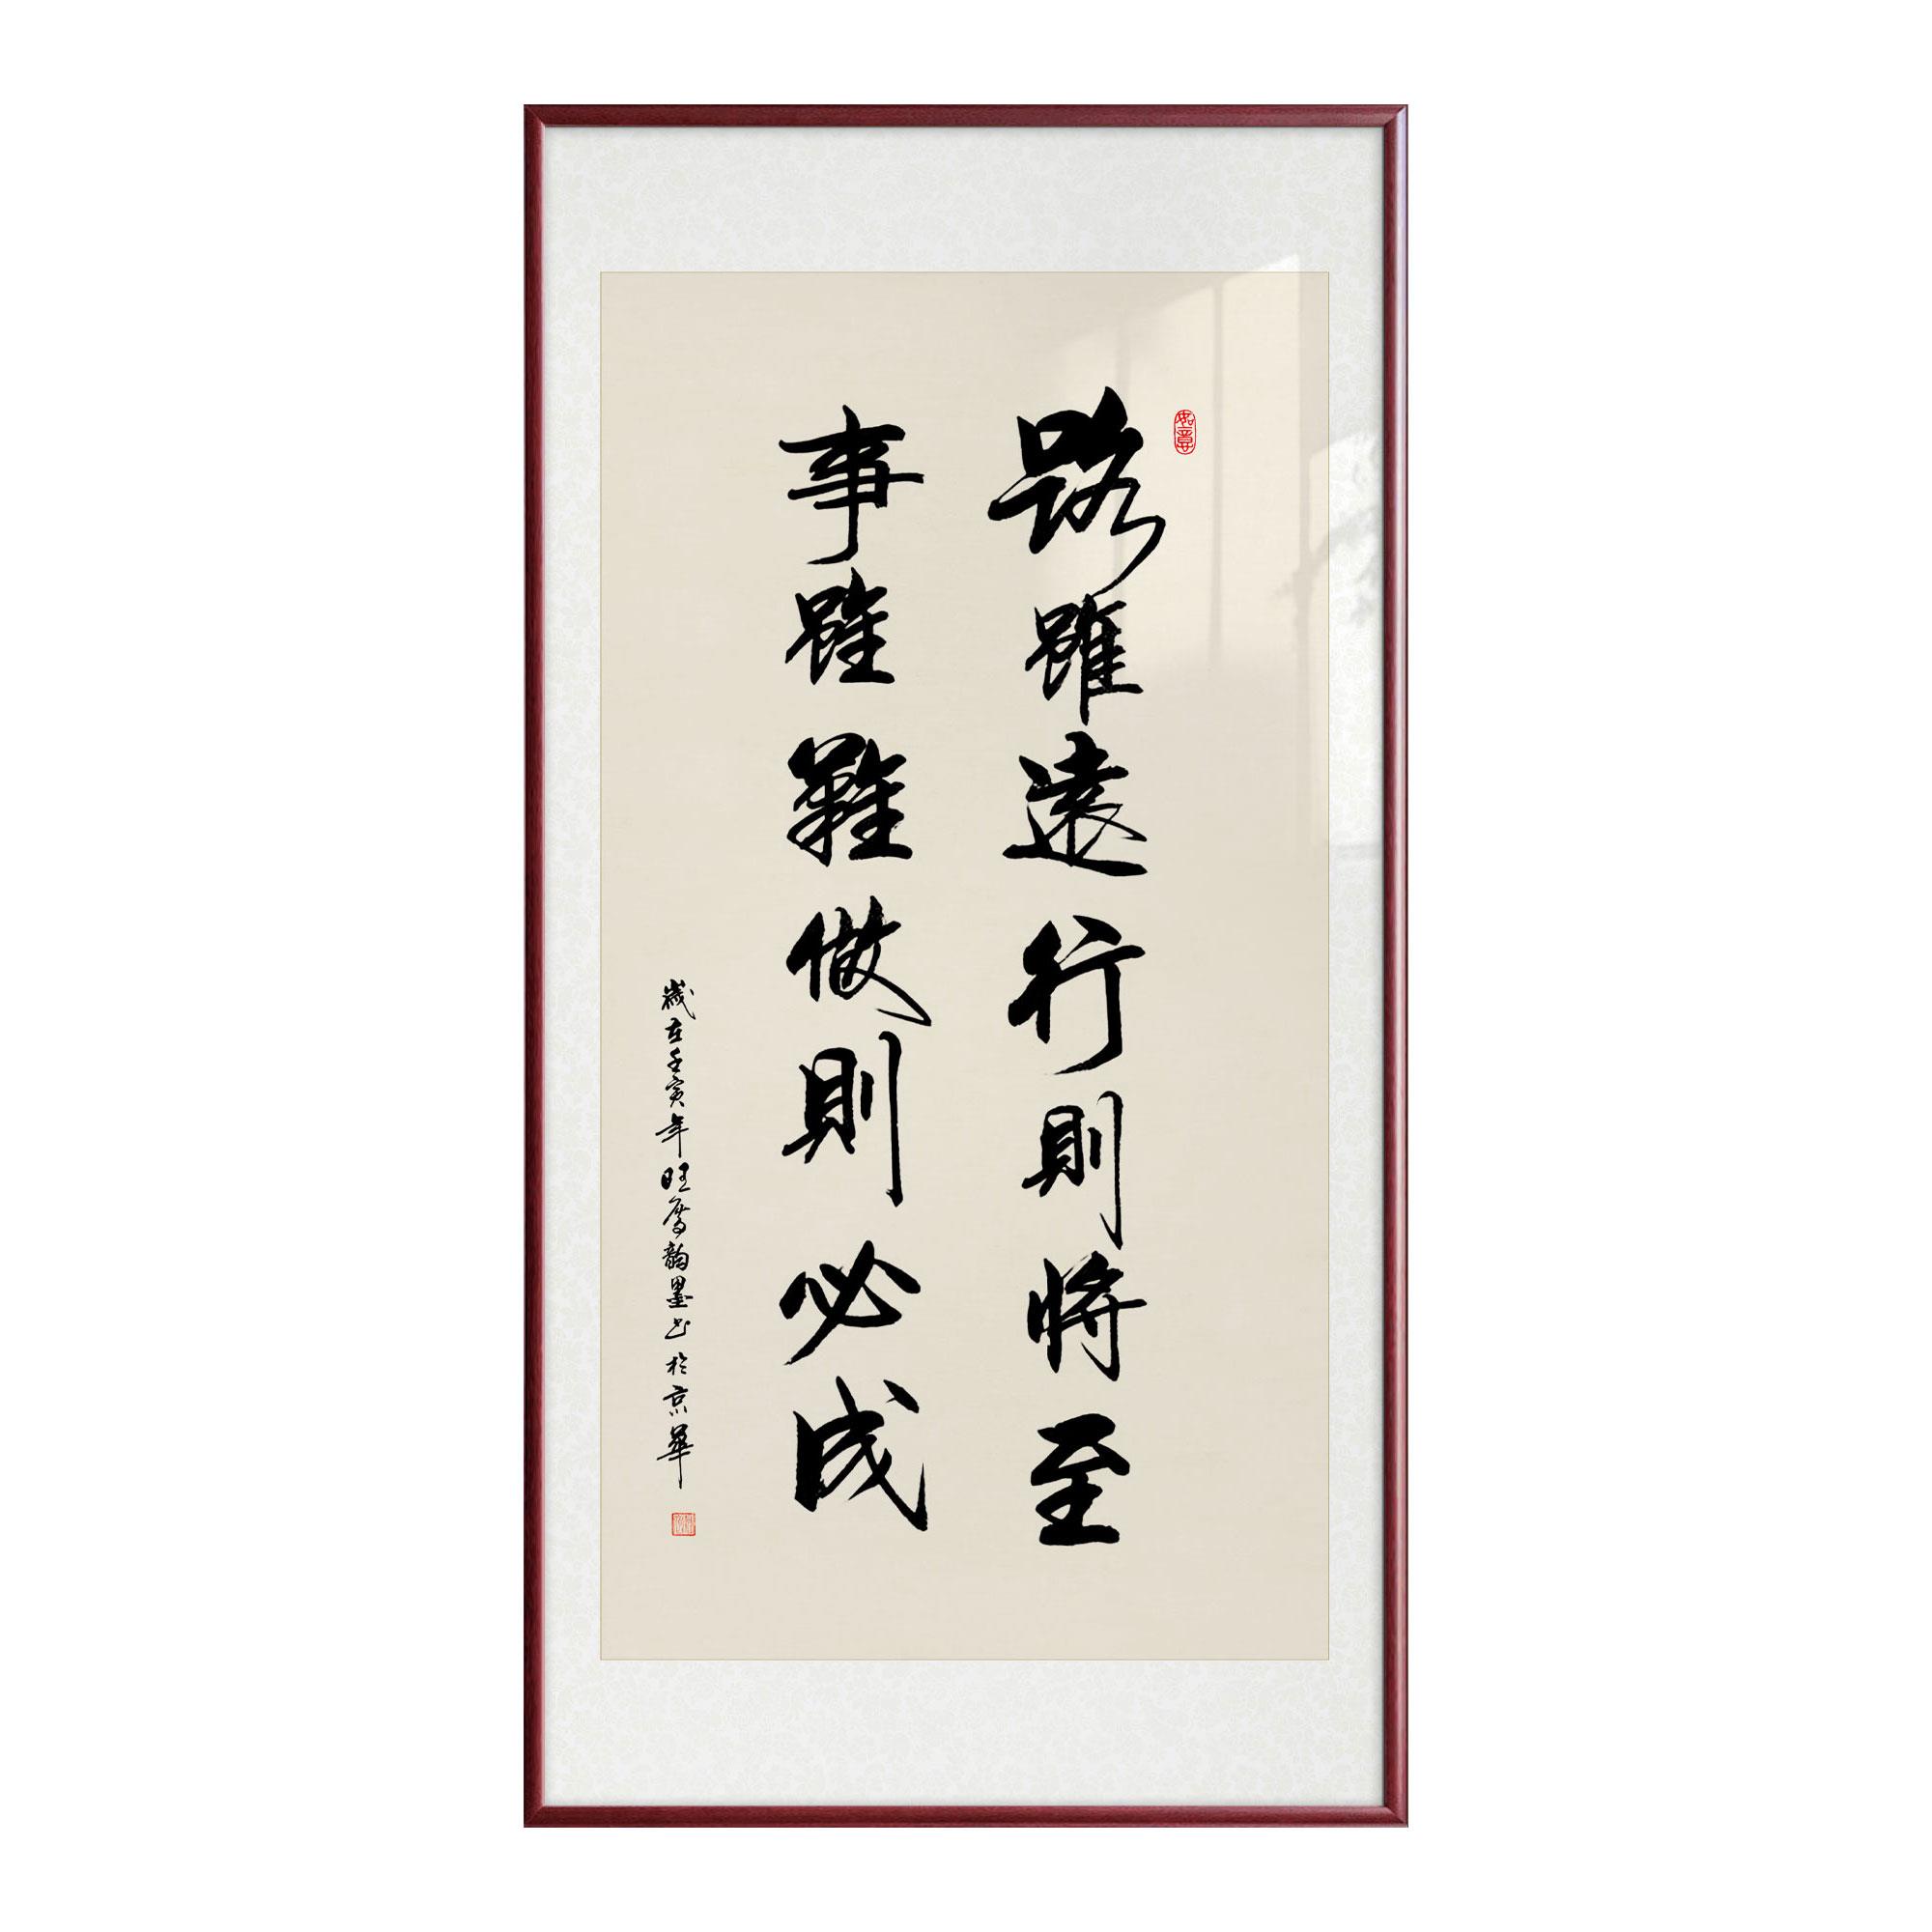 路雖遠行則將至
事雖難做則必成
歲在壬寅年旺厚韵墨書於京華
如意